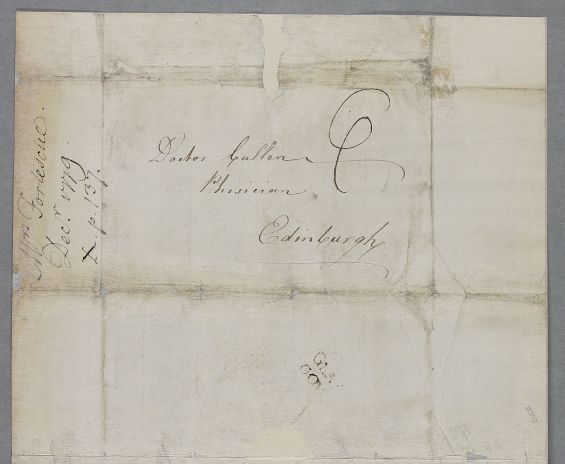 Doctor Cullen
Phisician
Edinburgh
Mrs Fortescue.
Decr. 1779.
p. 137.